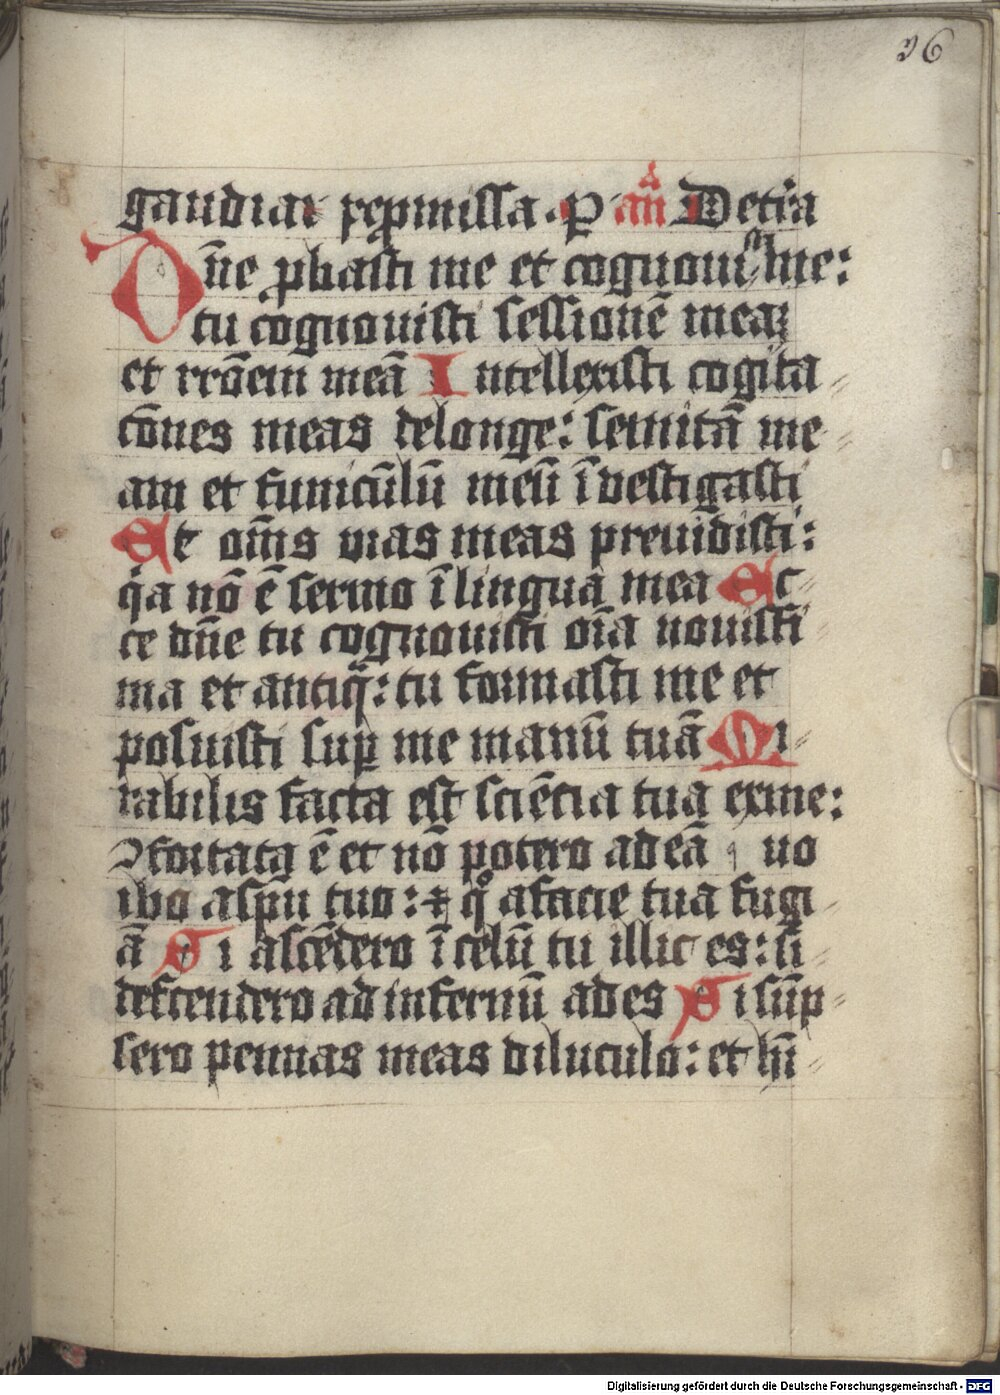 96
gaudiat repmissa . P an̄ De tr̄a
Dn̄e ꝓbasti me et cognouiſti me:
tu cognouisti sessionē meaꝫ
et rr̄oem meā Intellexisti cogita
cōnes meas delonge: semitā me
am et funicūlū meū īvestigasti
Et om̄s vias meas preuidisti:
q̇a nō ē sermo ī lingua mea Ec
ce dn̄e tu cognouisti oīa nouissi
ma et antiq̄: tu formasti me et
posuisti suꝑ me manū tuā Mi
rabilis facta est sciēcia tua ex me:
ꝯfortata ē et nō potero ad eā uo
ibo a spū tuo: et q̊ a facie tua fugi
ā Si ascēdero ī celū tu illic es: si
descendero ad infernū ades Si sūp
sero pennas meas diluculo: et hī
Digitalisierung gefördert durch die Deutsche Forschungsgemeinschaft - DFG